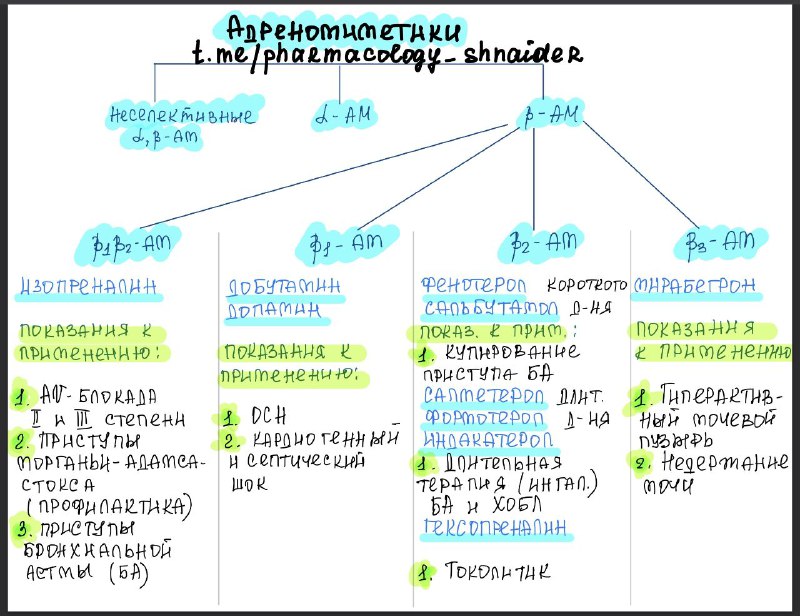 Адреномиметики
t.me/pharmacology_shnaider
Неселективные
α,β-АМ
α-АМ
β-АМ
β1β2-АМ
β1-АМ
β2-АМ
β3-АМ
Изопреналин
Показания к
применению:
1. АV-блокада
II и III степени
2. Приступы
Морганьи-Адамса-
Стокса
(профилактика)
3. Приступы
бронхиальной
астмы (БА)
Добутамин
Допамин
Показания к
применению:
1. ОСН
2. Кардиогенный
и септический
шок
Фенотерол короткого
Сальбутамол д-ия
Показ. к прим.:
1. Купирование
приступа БА
Салметерол длит.
Формотерол д-ия
Индакатерол
1. Длительная
терапия (ингал.)
БА и ХОБЛ
Гексопреналин
1. Токолитик
Мирабегрон
Показания
к применению
1. Гиперактив-
ный мочевой
пузырь
2. Недержание
мочи